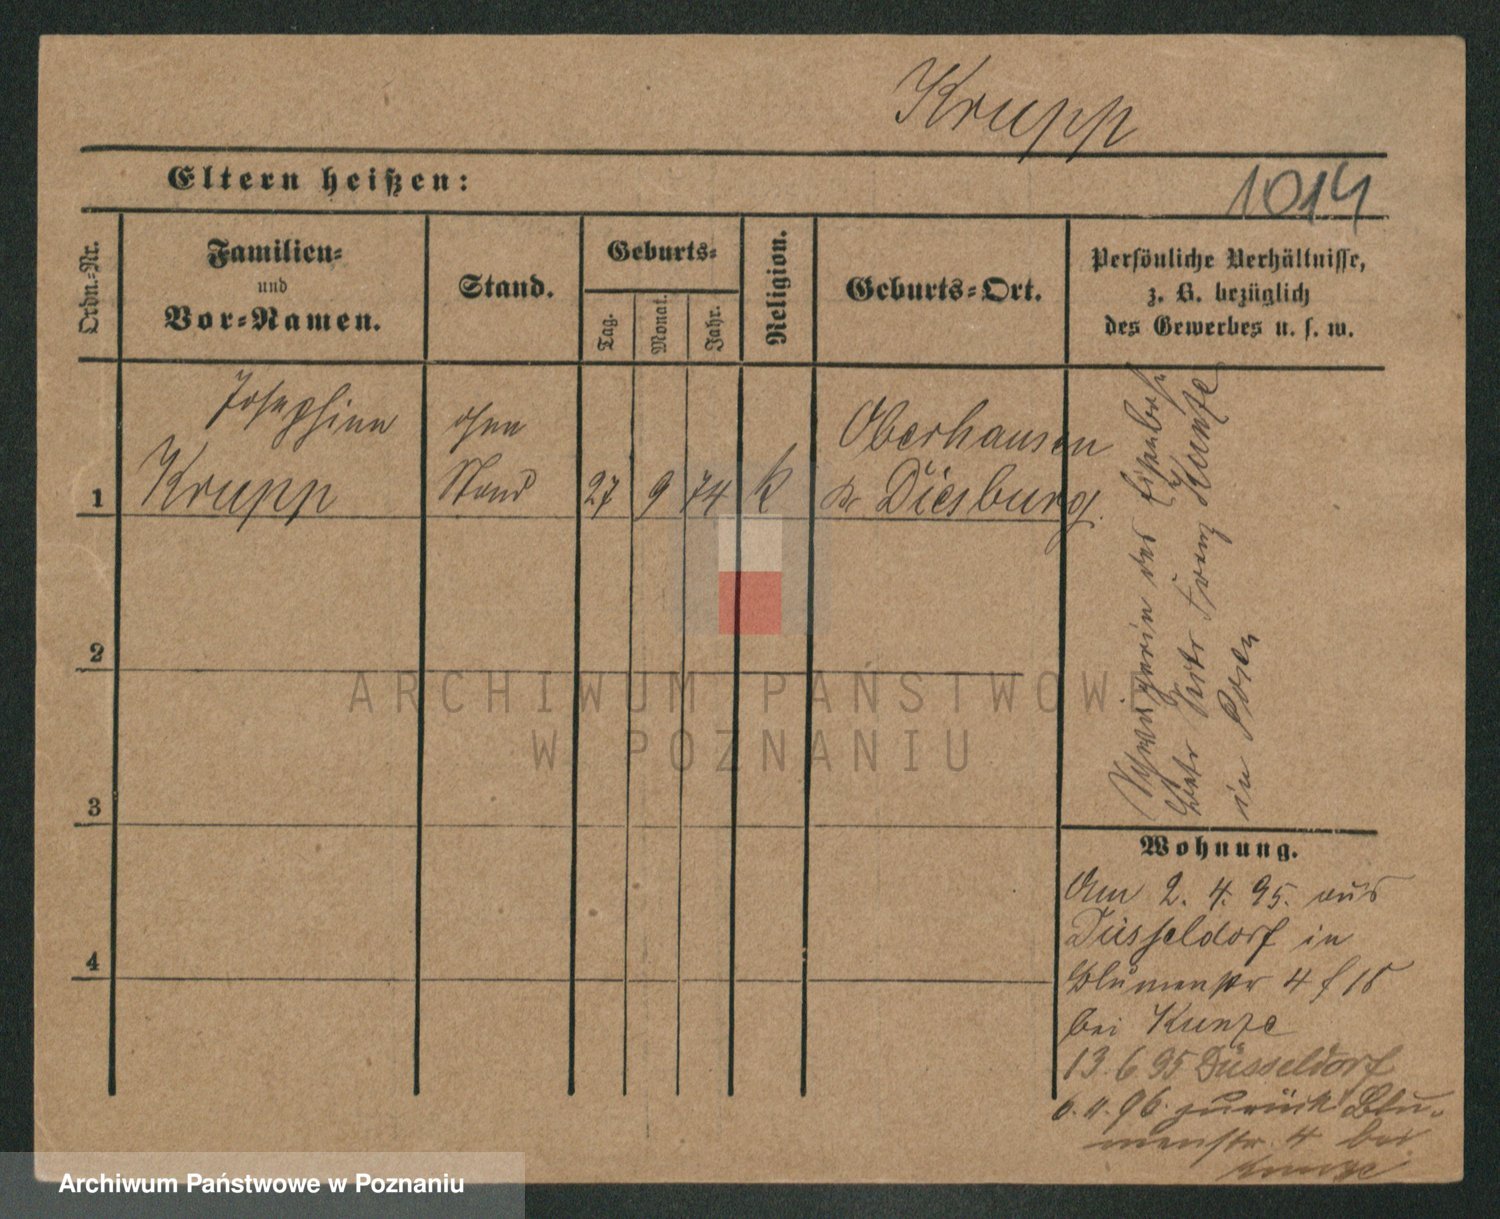 Krupp
Eltern heißen:
1014
Ordn.-Nr.
Familien-
und
Vor-Namen.
Stand.
Geburts-
Tag.
Monat.
Jahr.
Religion.
Geburts-Ort.
Persönliche Verhältnisse,
z. B. bezüglich
des Gewerbes u. s. w.
Josephine
Krupp
ohne
Stand
1
27
9
74
k
Oberhausen
Diesburg.
Schwägerin des Eisenbahn
Franz Kunze
in Posen
2
3
4
Wohnung.
Am 2. 4. 95. aus
Düsseldorf in
Blumenstr 4
bei Kunze
13. 6 95 Düsseldorf
96. zurück Blu-
menstr. 4 bei
Kunze
ARCHIWUM PAŃSTWOWE
W POZNANIU
Archiwum Państwowe w Poznaniu